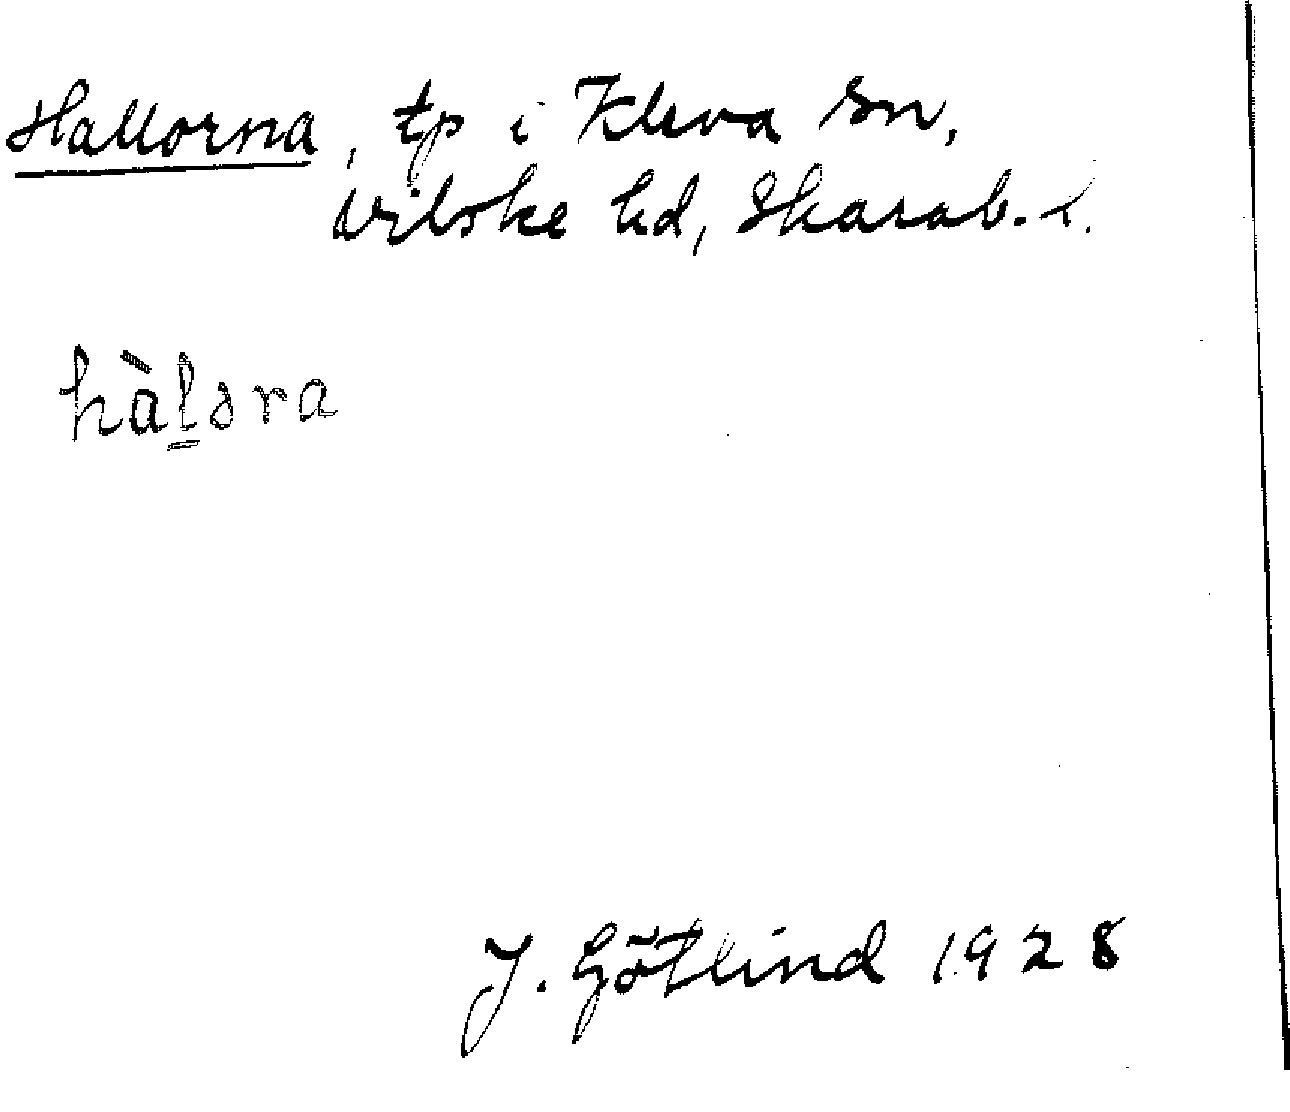 Hallorna, tp i Kleva sn,
Vilske hd, Skarab. l.
hàl̲əra
J. Götlind 1928